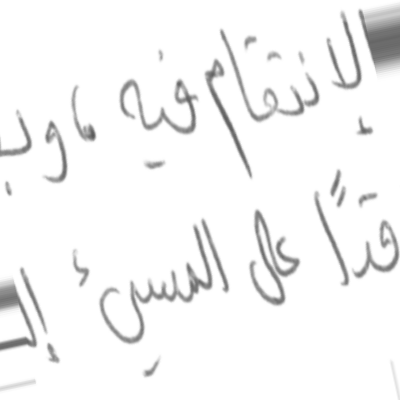 لإنتقام فيه ، وب
قدًا على المسيئ إلـ